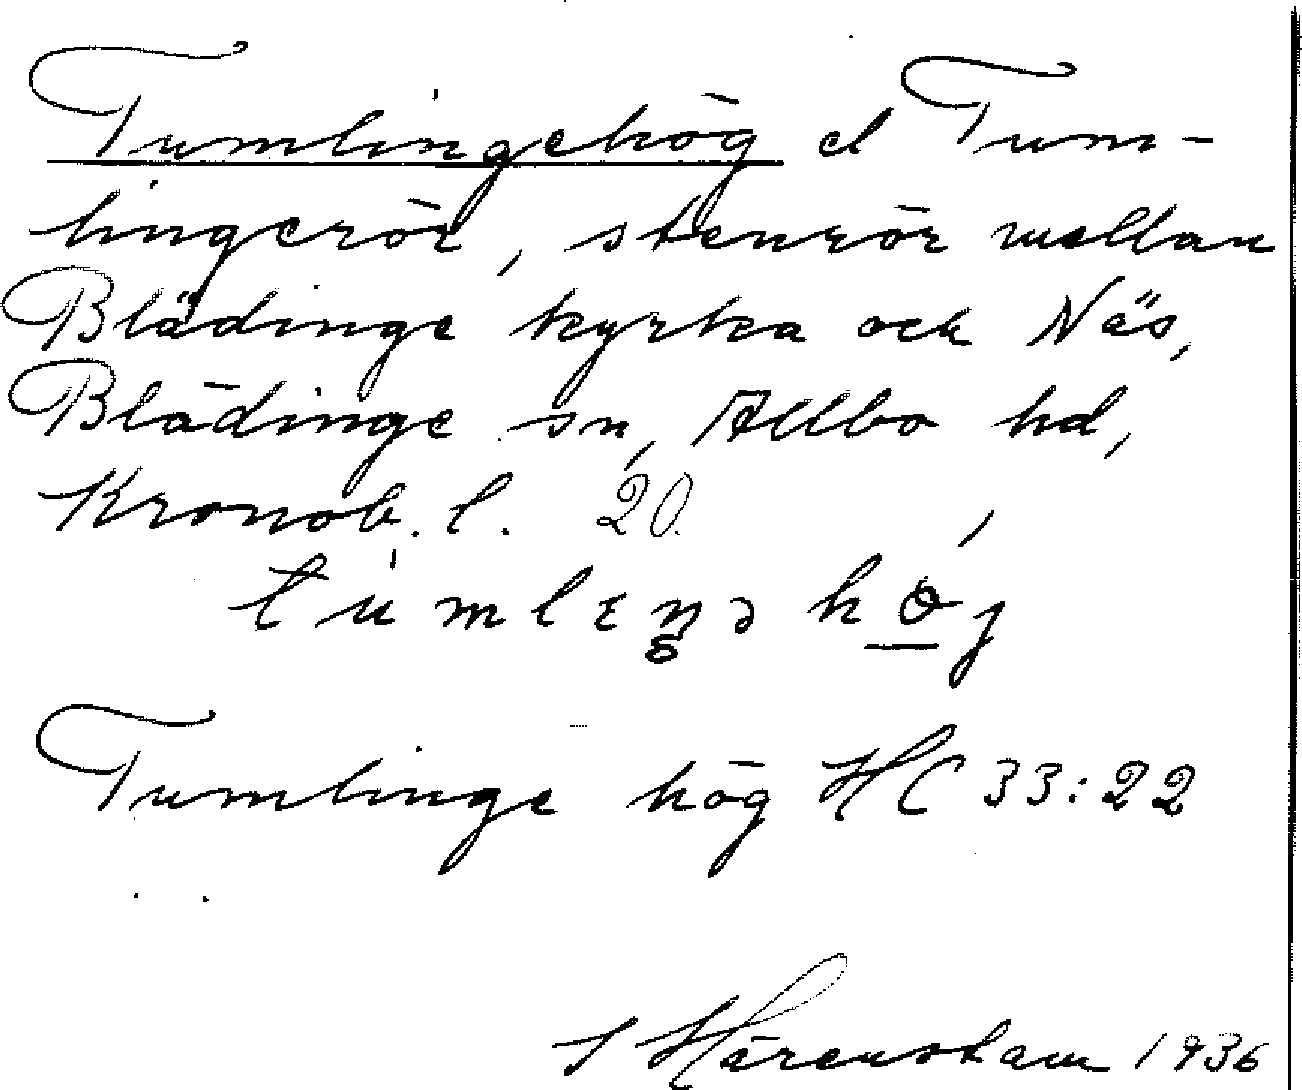 Tumlingehög el Tum-
lingerör, stenrör mellan
Blädinge kyrka och Näs,
Blädinge sn, Allbo hd,
Kronob. l. 20.
Tumlinge hög HC 33:22
S Härenstam 1936